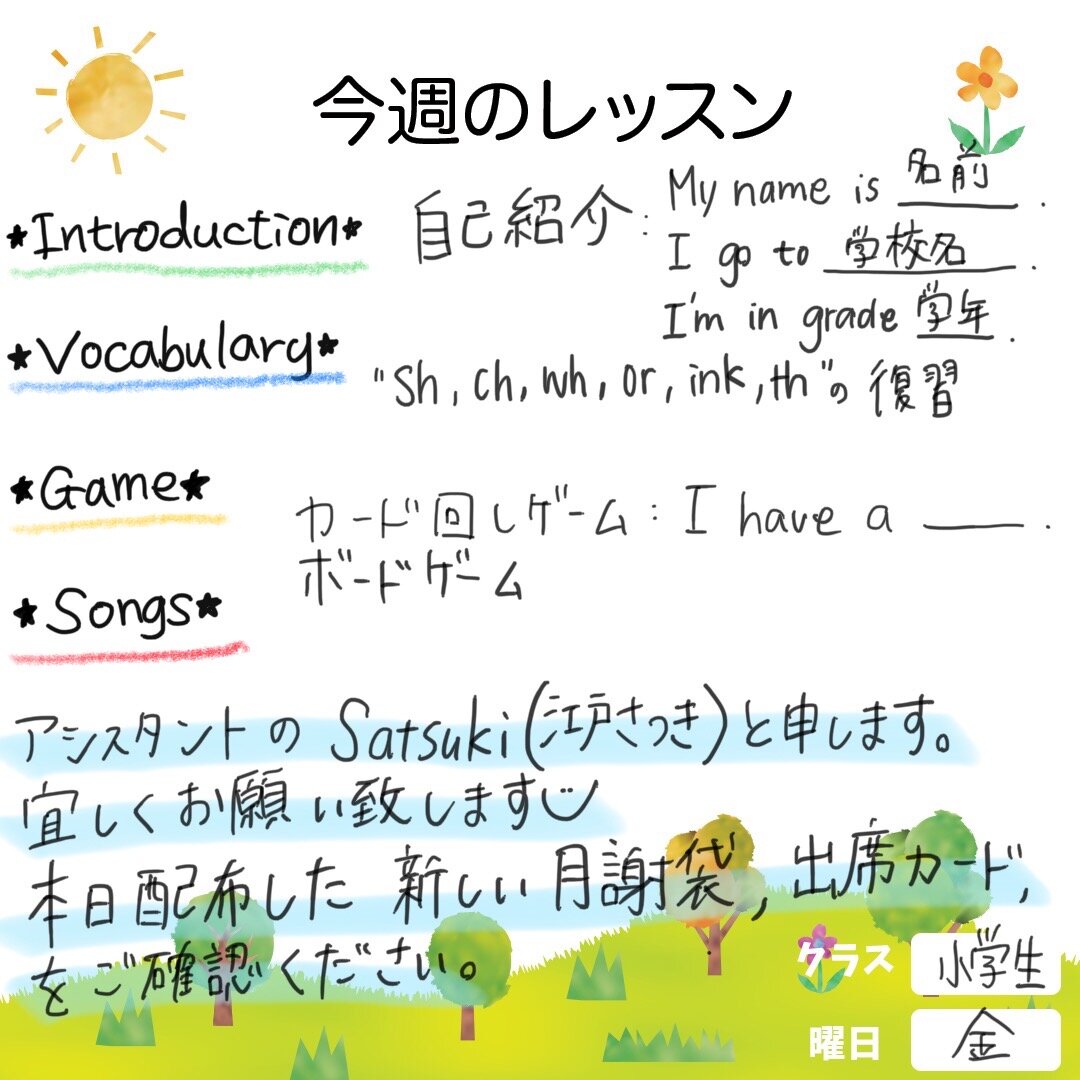 今週のレッスン
★Introduction★
自己紹介:
My name is 名前.
I go to 学校名.
I'm in grade 学年.
★Vocabulary★
"Sh, ch, wh, or, ink, th"の復習
★Game★
カード回しゲーム: I have a ___.
ボードゲーム
★Songs★
アシスタントの Satsuki(江戸さつき)と申します。
宜しくお願い致します
本日配布した 新しい月謝袋, 出席カード,
をご確認ください。
クラス 小学生
曜日 金